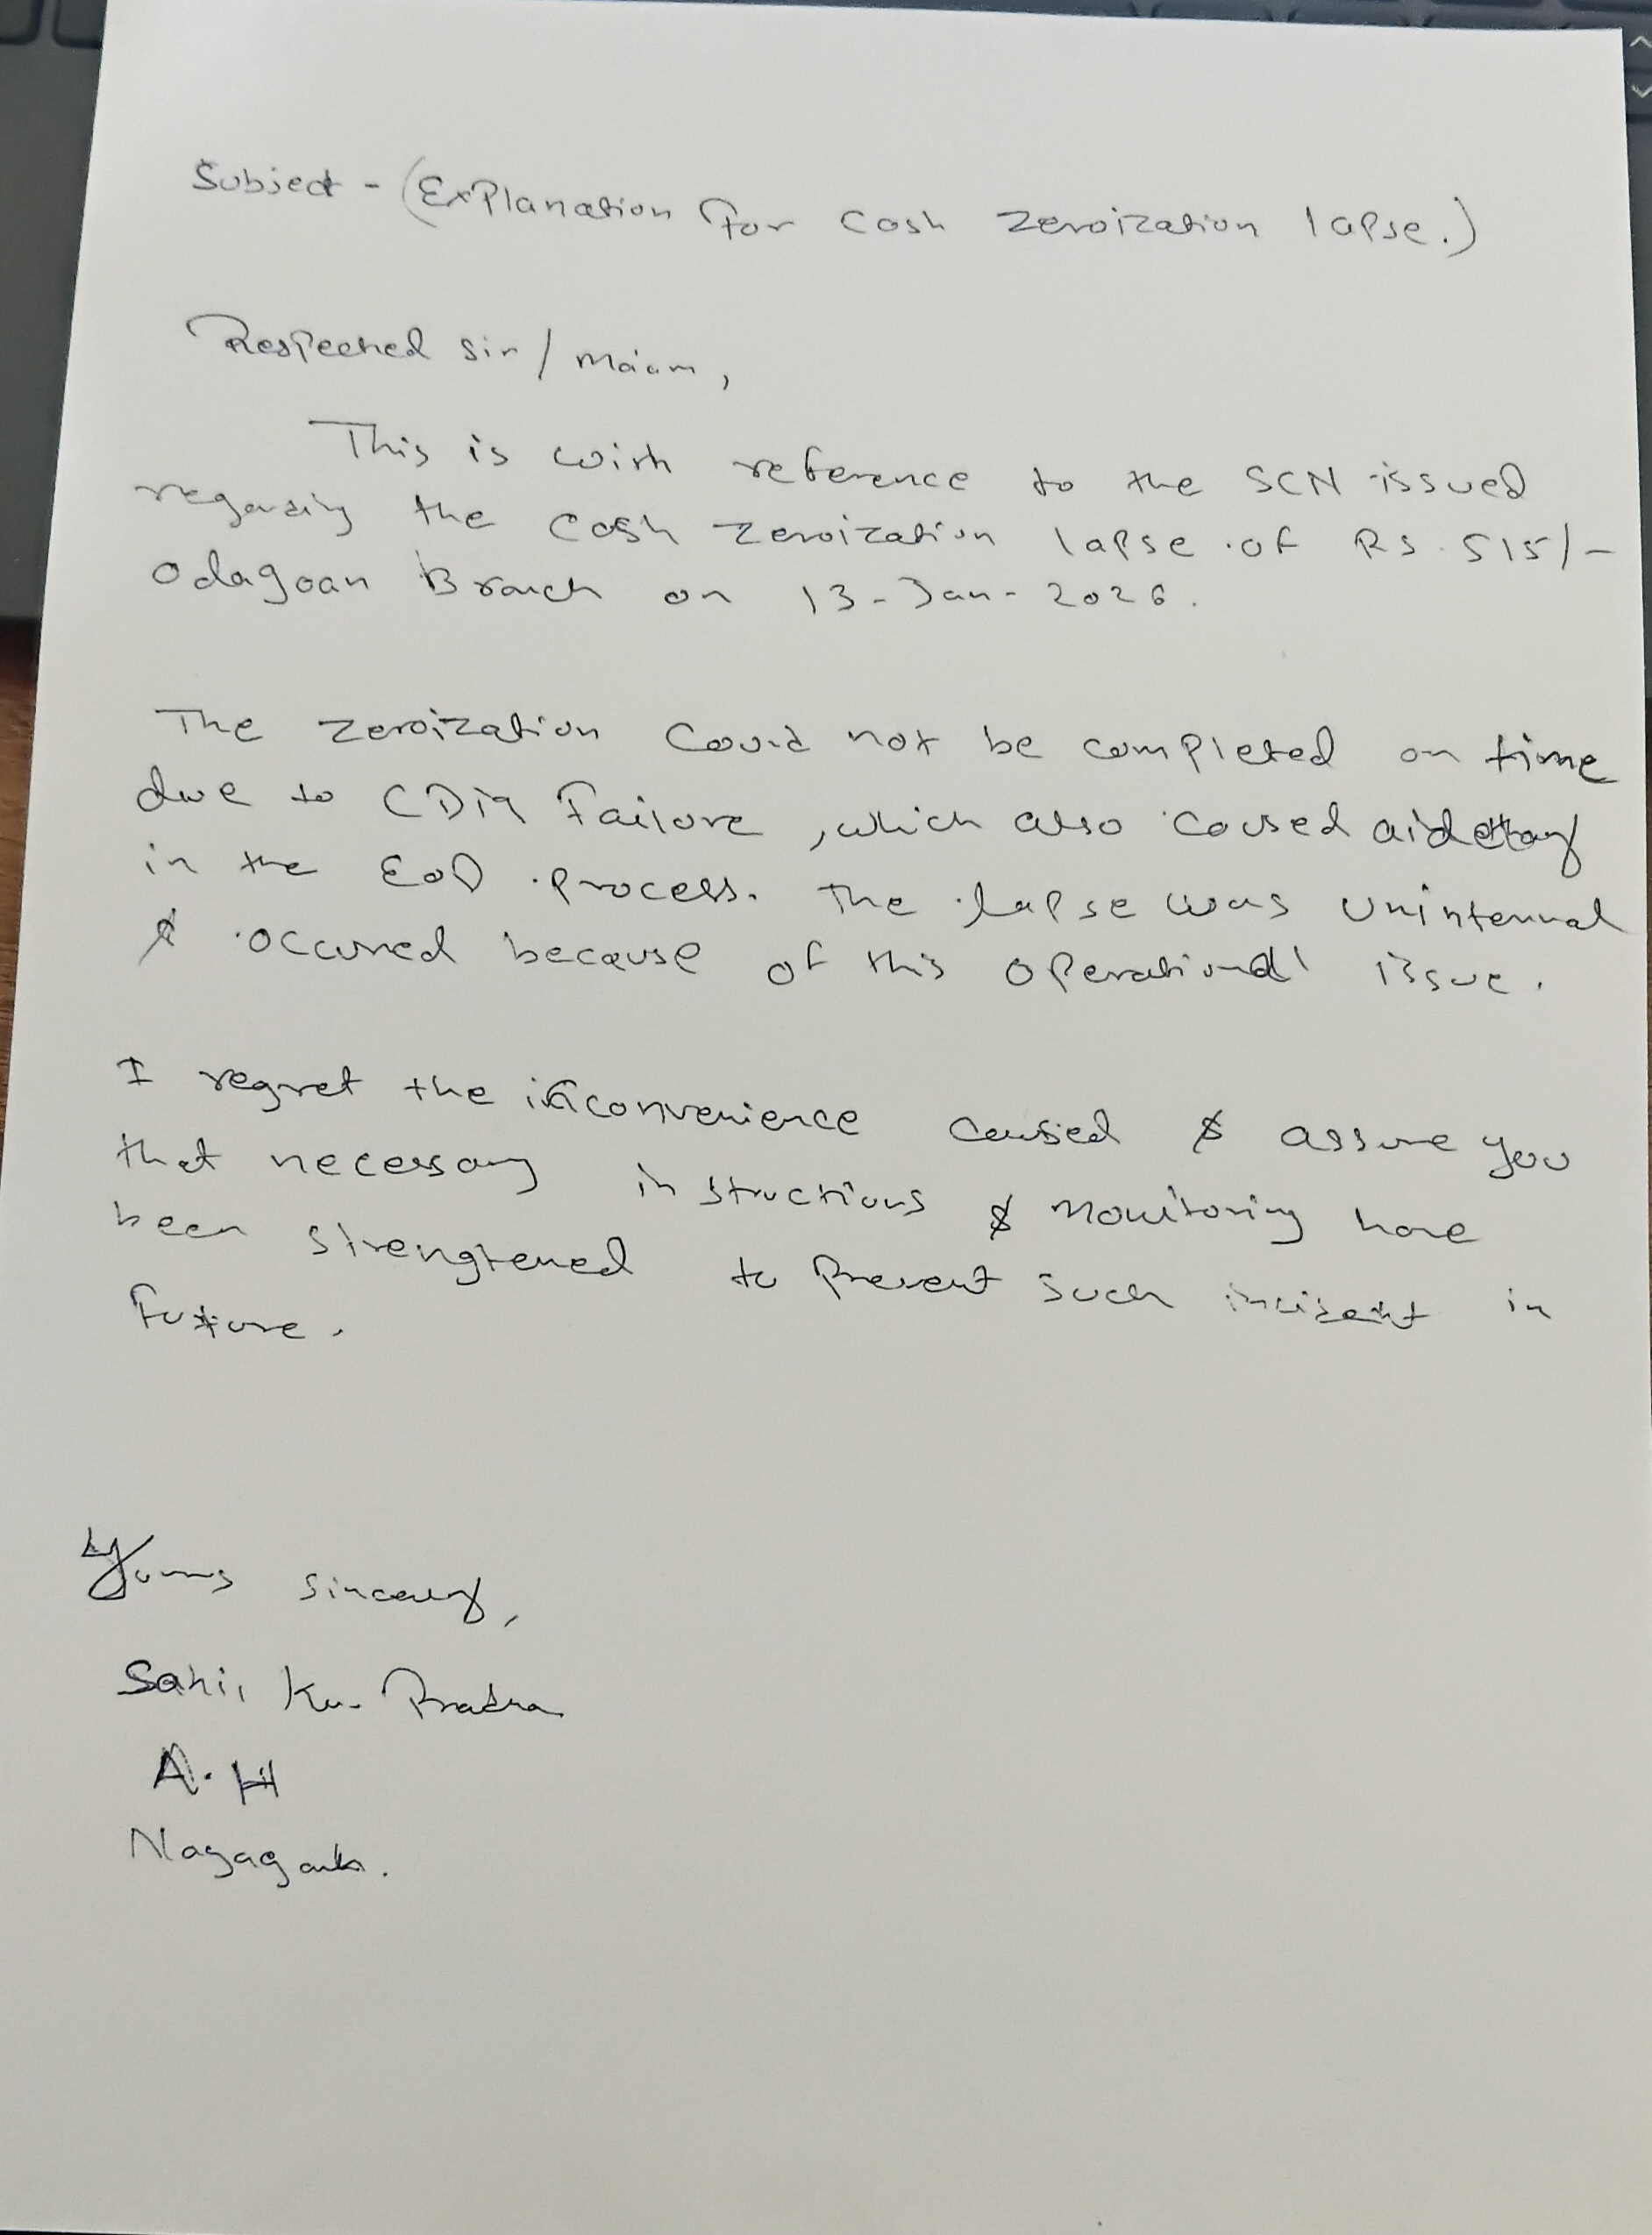 Subject - (Explanation for cash zeroization lapse.)
Respected sir / Ma'am,
This is with reference to the SCN issued
regarding the cash zeroization lapse of Rs 515/-
Odagoan Branch on 13-Jan-2026.
The zeroization could not be completed on time
due to CDM Failure, which also caused a
in the EOD process. The lapse was
& occurred because of this operational issue.
I regret the inconvenience caused & assure you
that necessary instructions & monitoring have
been strengtened to prevent such incident in
future.
Yours sincerely,
Sahil Ku. Pradhan
A.H
Nayagarh.